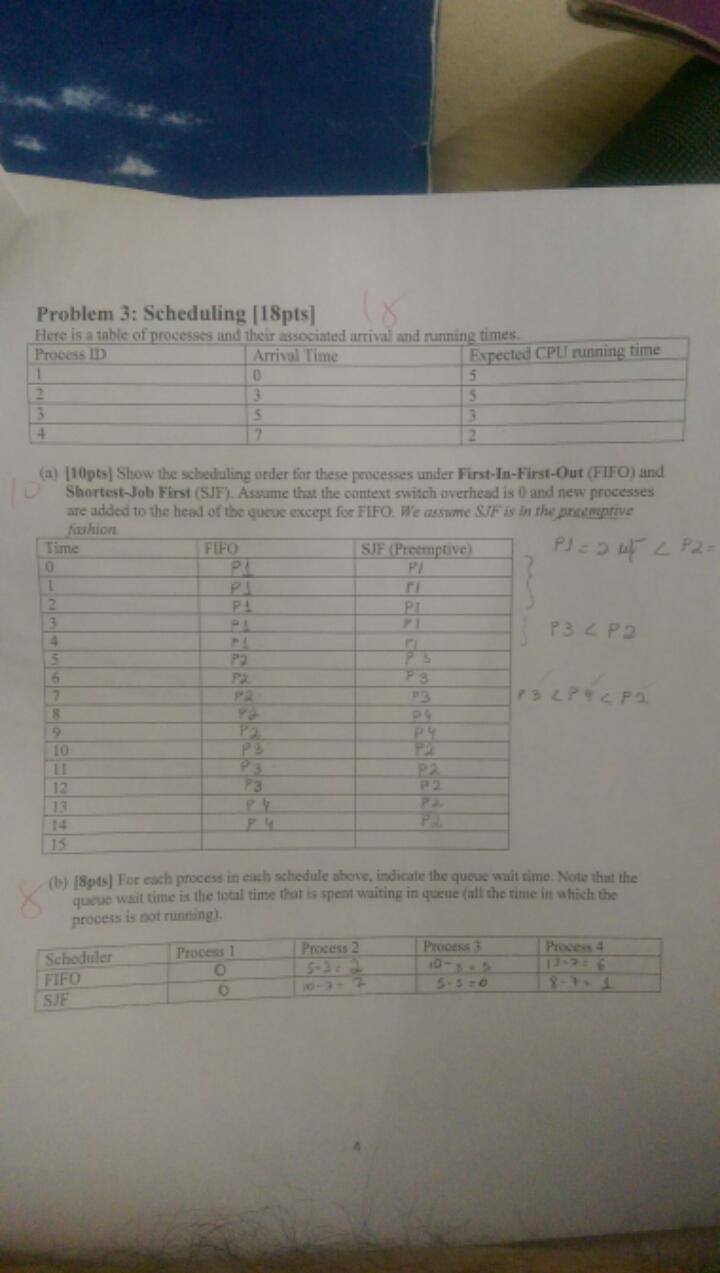 Problem 3: Scheduling [18pts] 18
Here is a table of processes and their associated arrival and running times.
Process ID Arrival Time Expected CPU running time
1 0 5
2 3 5
3 5 3
4 7 2
(a) [10pts] Show the scheduling order for these processes under First-In-First-Out (FIFO) and
10 Shortest-Job First (SJF). Assume that the context switch overhead is 0 and new processes
are added to the head of the queue except for FIFO. We assume SJF is in the preemptive
fashion.
Time FIFO SJF (Preemptive) P1 = 2 < P2 =
0 P1 P1
1 P1 P1
2 P1 P1
3 P1 P1
4 P1 P1 P3 < P2
5 P2 P3
6 P2 P3
7 P2 P3 P3 < P4 < P2
8 P2 P4
9 P2 P4
10 P3 P2
11 P3 P2
12 P3 P2
13 P4 P2
14 P4 P2
15
(b) [8pts] For each process in each schedule above, indicate the queue wait time. Note that the
8 queue wait time is the total time that is spent waiting in queue (all the time in which the
process is not running).
Scheduler Process 1 Process 2 Process 3 Process 4
FIFO 0 5-3= 2 10-5=5 13-7= 6
SJF 0 10-3= 7 5-5=0 8-7= 1
4